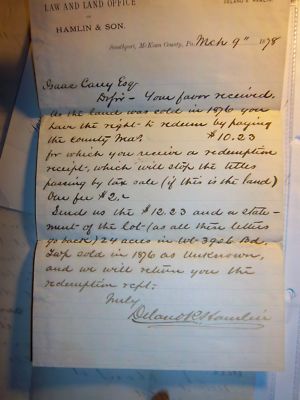 LAW AND LAND OFFICE
OF
HAMLIN & SON.
DELANO R. HAMLIN.
Smethport, McKean County, Pa. Mch 9" 1878
Isaac Carey Esq.
D. Sir - Your favor received.
As the land was sold in 1876 you
have the right to redeem by paying
the county Treas. $10.23
for which you receive a redemption
receipt, which will stop the titles
passing by tax sale (if this is the land)
Our fee $2.-
Send us the $12.23 and a state-
ment of the lot - (as all these letters
go back) 24 acres in Wt. 3906 Bd.
Twp sold in 1876 as Unknown,
and we will return you the
redemption rcpt.
Truly
Delano R. Hamlin